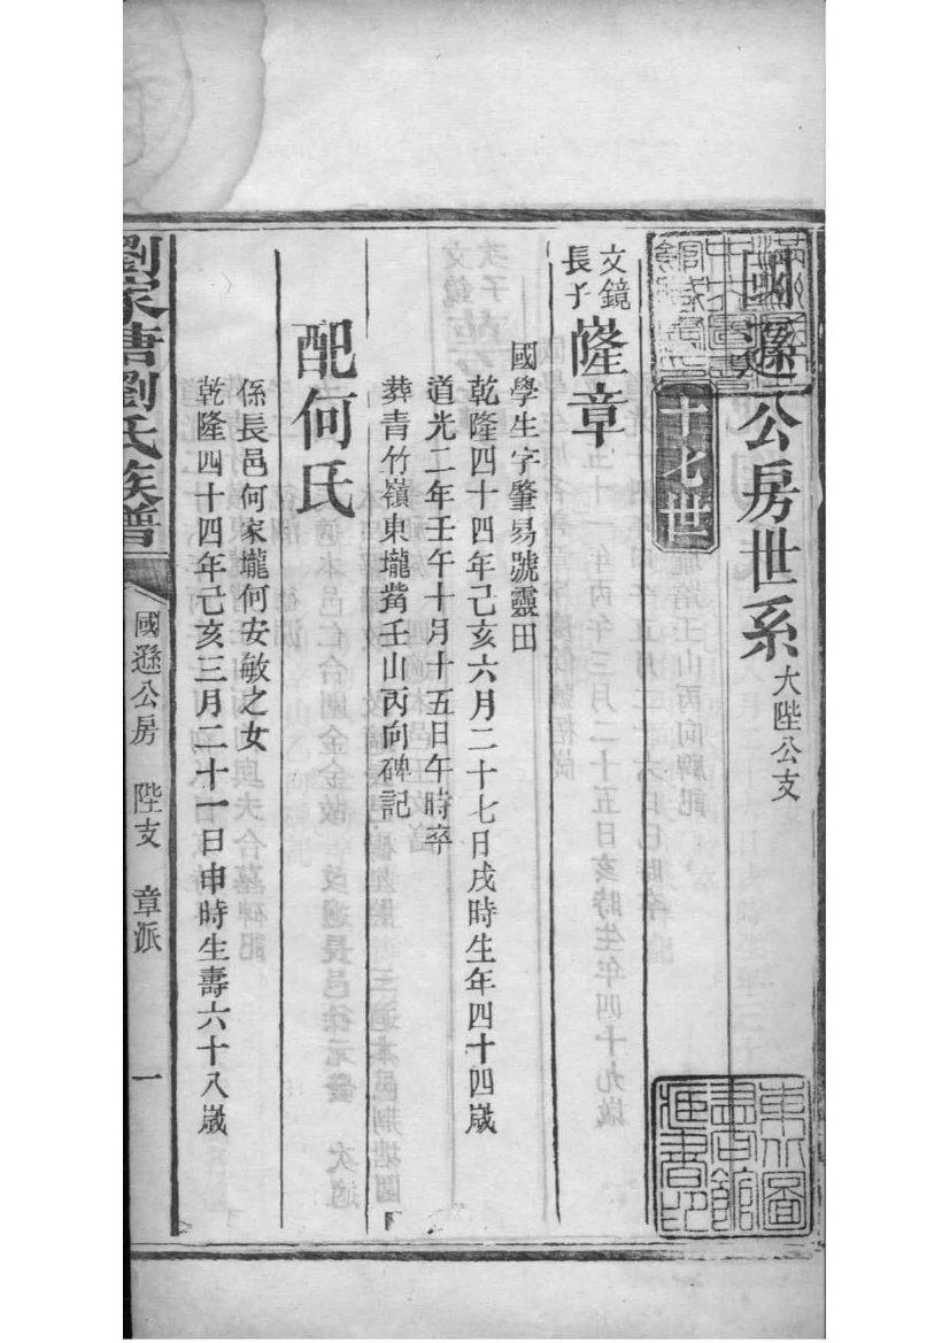 國遜公房世系 大陛公支
十之世
文鏡長子 隆章
國學生字肇易號靈田
乾隆四十四年己亥六月二十七日戌時生年四十四歲
道光二年壬午十月十五日午時卒
葬青竹嶺東壠觜壬山丙向碑記
配何氏
係長邑何家壠何安敏之女
乾隆四十四年己亥三月二十一日申時生壽六十八歲
劉家塘劉氏族譜
國遜公房 陛支 章派 一